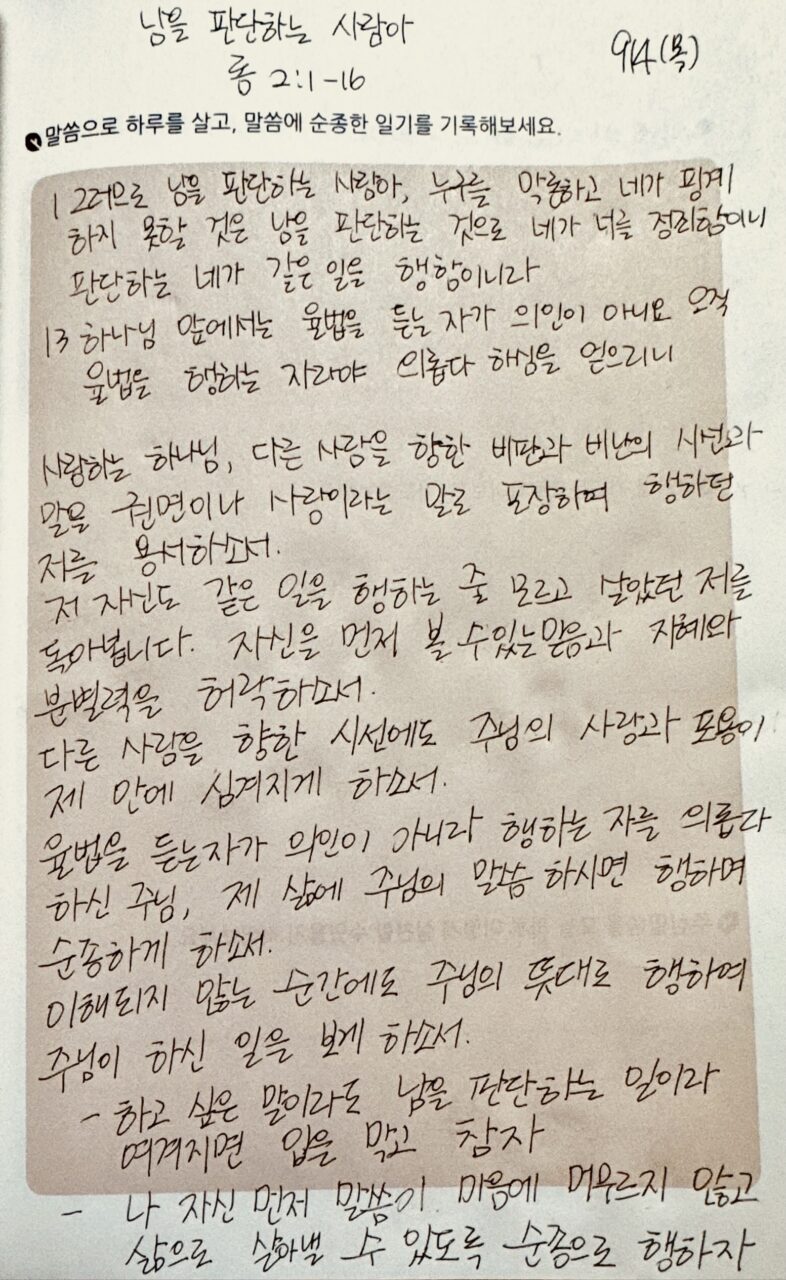 남을 판단하는 사람아
9/4(목)
롬 2:1-16
말씀으로 하루를 살고, 말씀에 순종한 일기를 기록해보세요.
1 그러므로 남을 판단하는 사람아, 누구를 막론하고 네가 핑계
하지 못할 것은 남을 판단하는 것으로 네가 너를 정죄함이니
판단하는 네가 같은 일을 행함이니라
13 하나님 앞에서는 율법을 듣는 자가 의인이 아니요 오직
율법을 행하는 자라야 의롭다 하심을 얻으리니
사랑하는 하나님, 다른 사람을 향한 비판과 비난의 시선과
말을 권면이나 사랑이라는 말로 포장하며 행하던
저를 용서하소서.
저 자신도 같은 일을 행하는 줄 모르고 살았던 저를
돌아봅니다. 자신을 먼저 볼 수 있는 믿음과 지혜와
분별력을 허락하소서.
다른 사람을 향한 시선에도 주님의 사랑과 포용이
제 안에 심겨지게 하소서.
율법을 듣는 자가 의인이 아니라 행하는 자를 의롭다
하신 주님, 제 삶에 주님의 말씀 하시면 행하며
순종하게 하소서.
이해되지 않는 순간에도 주님의 뜻대로 행하여
주님이 하신 일을 보게 하소서.
- 하고 싶은 말이라도 남을 판단하는 일이라
여겨지면 입을 막고 참자
- 나 자신 먼저 말씀이 마음에 머무르지 않고
삶으로 살아낼 수 있도록 순종으로 행하자